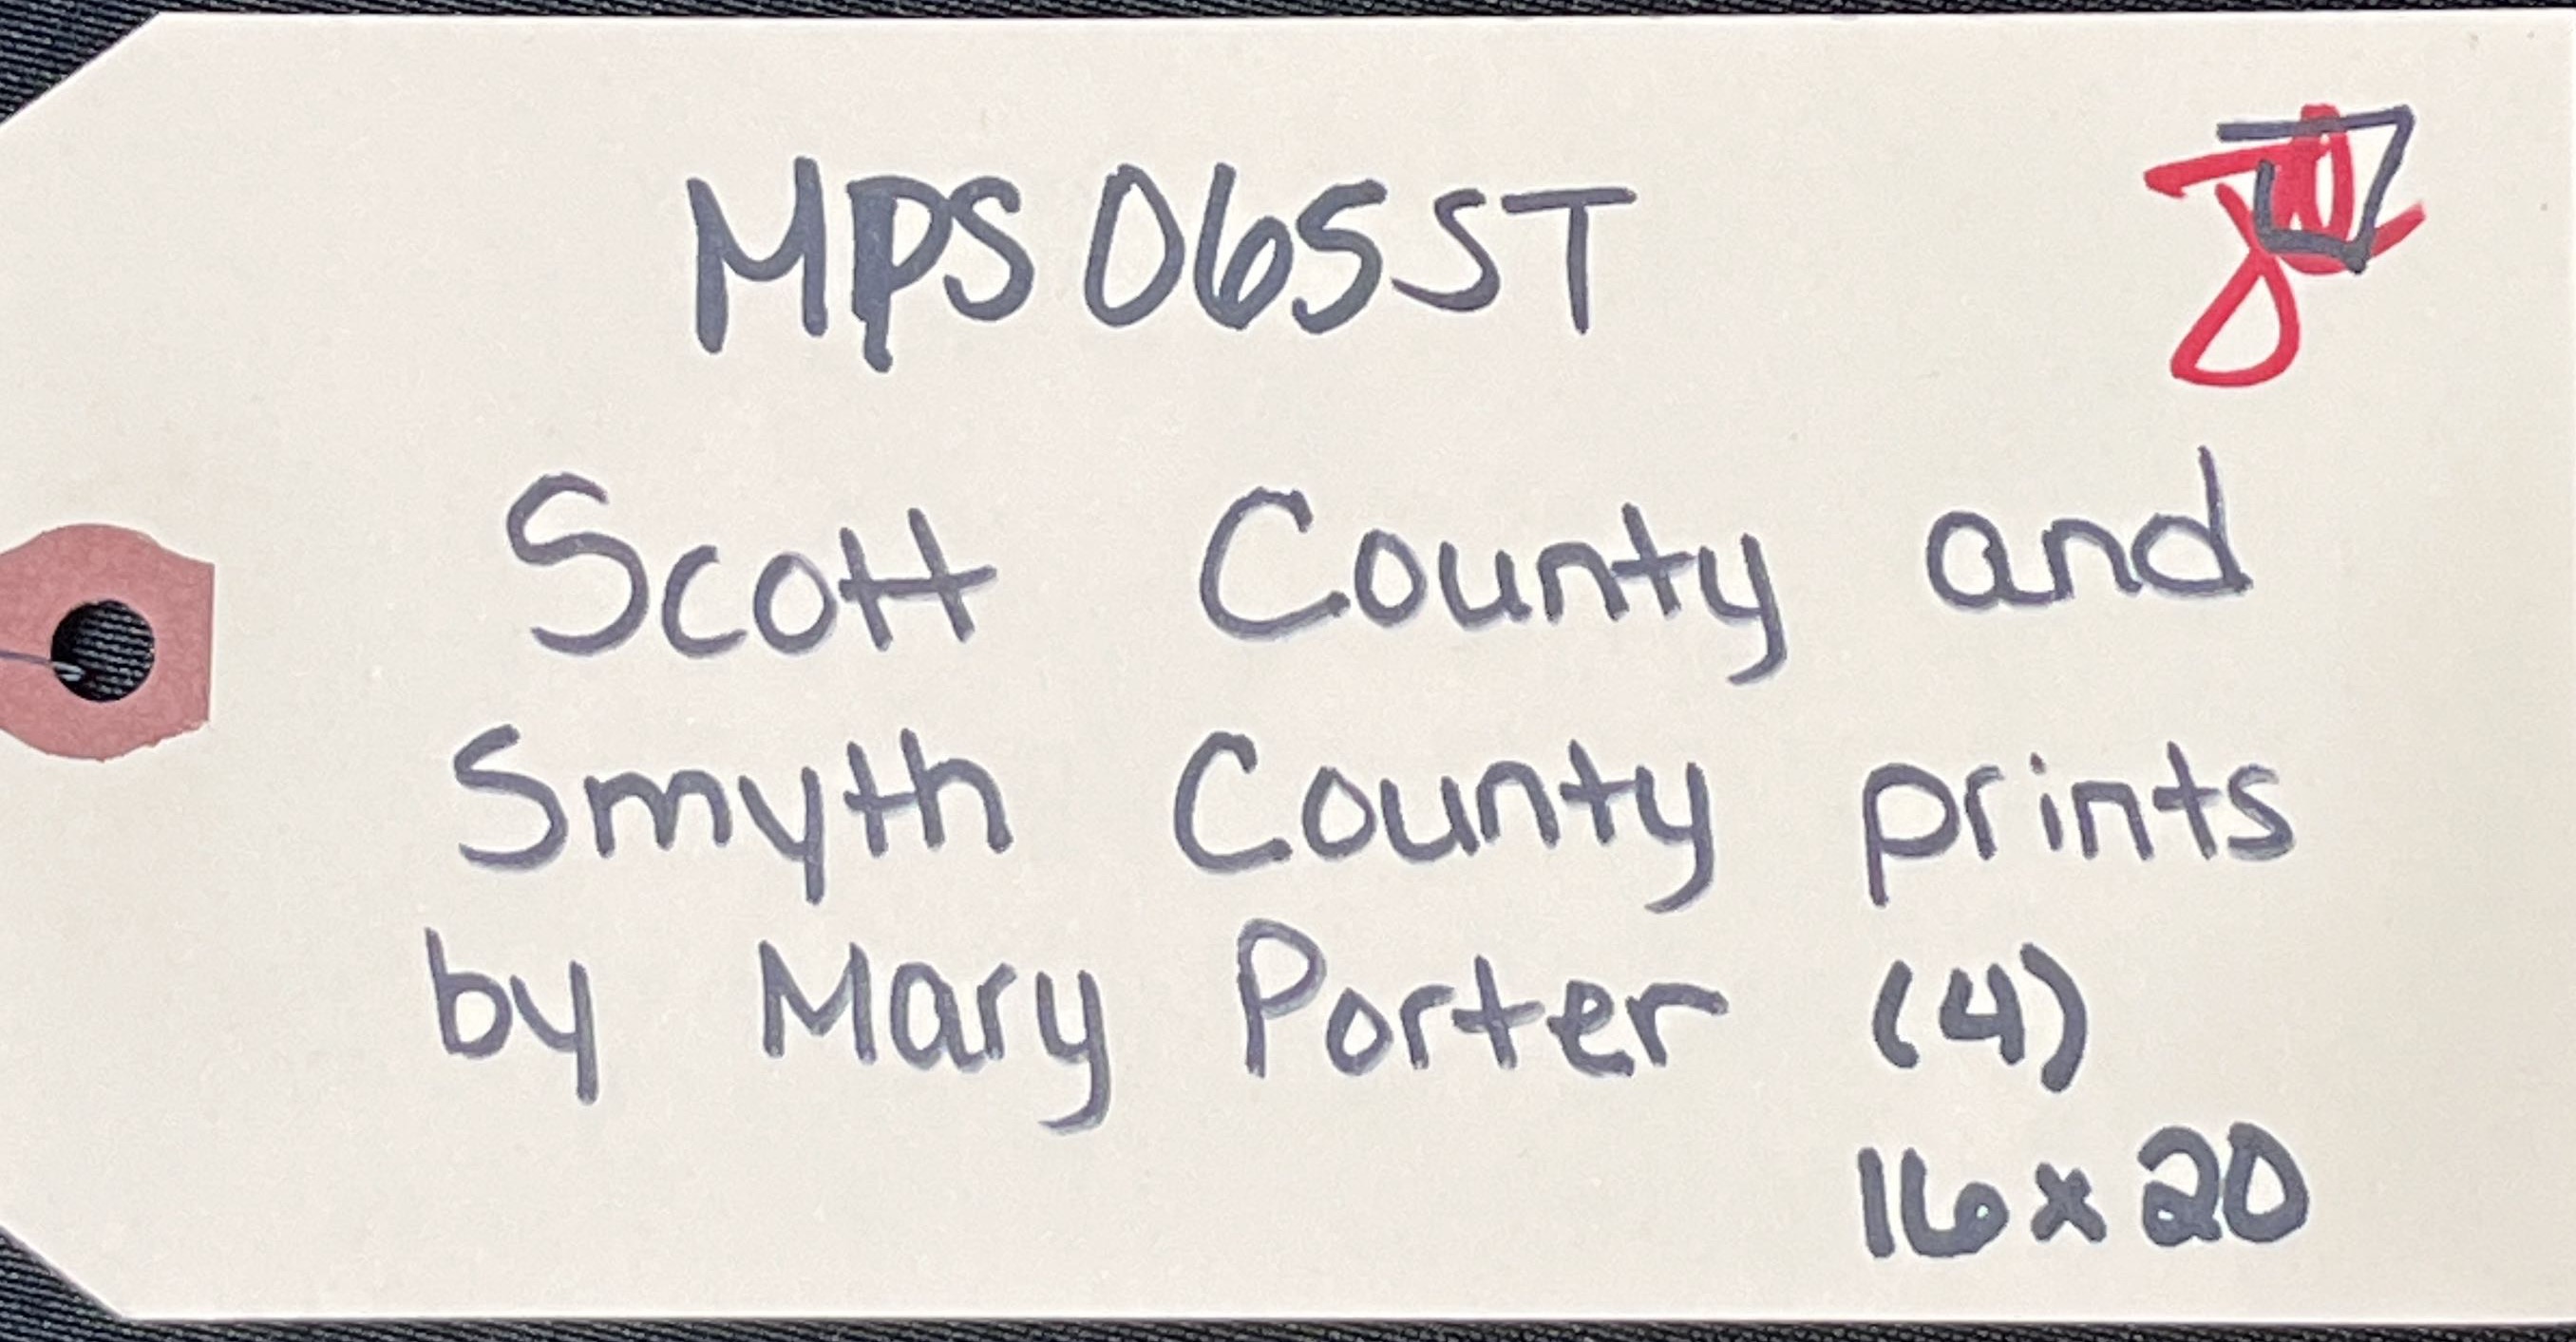 MPS065ST
Scott County and
Smyth County prints
by Mary Porter (4)
16x20